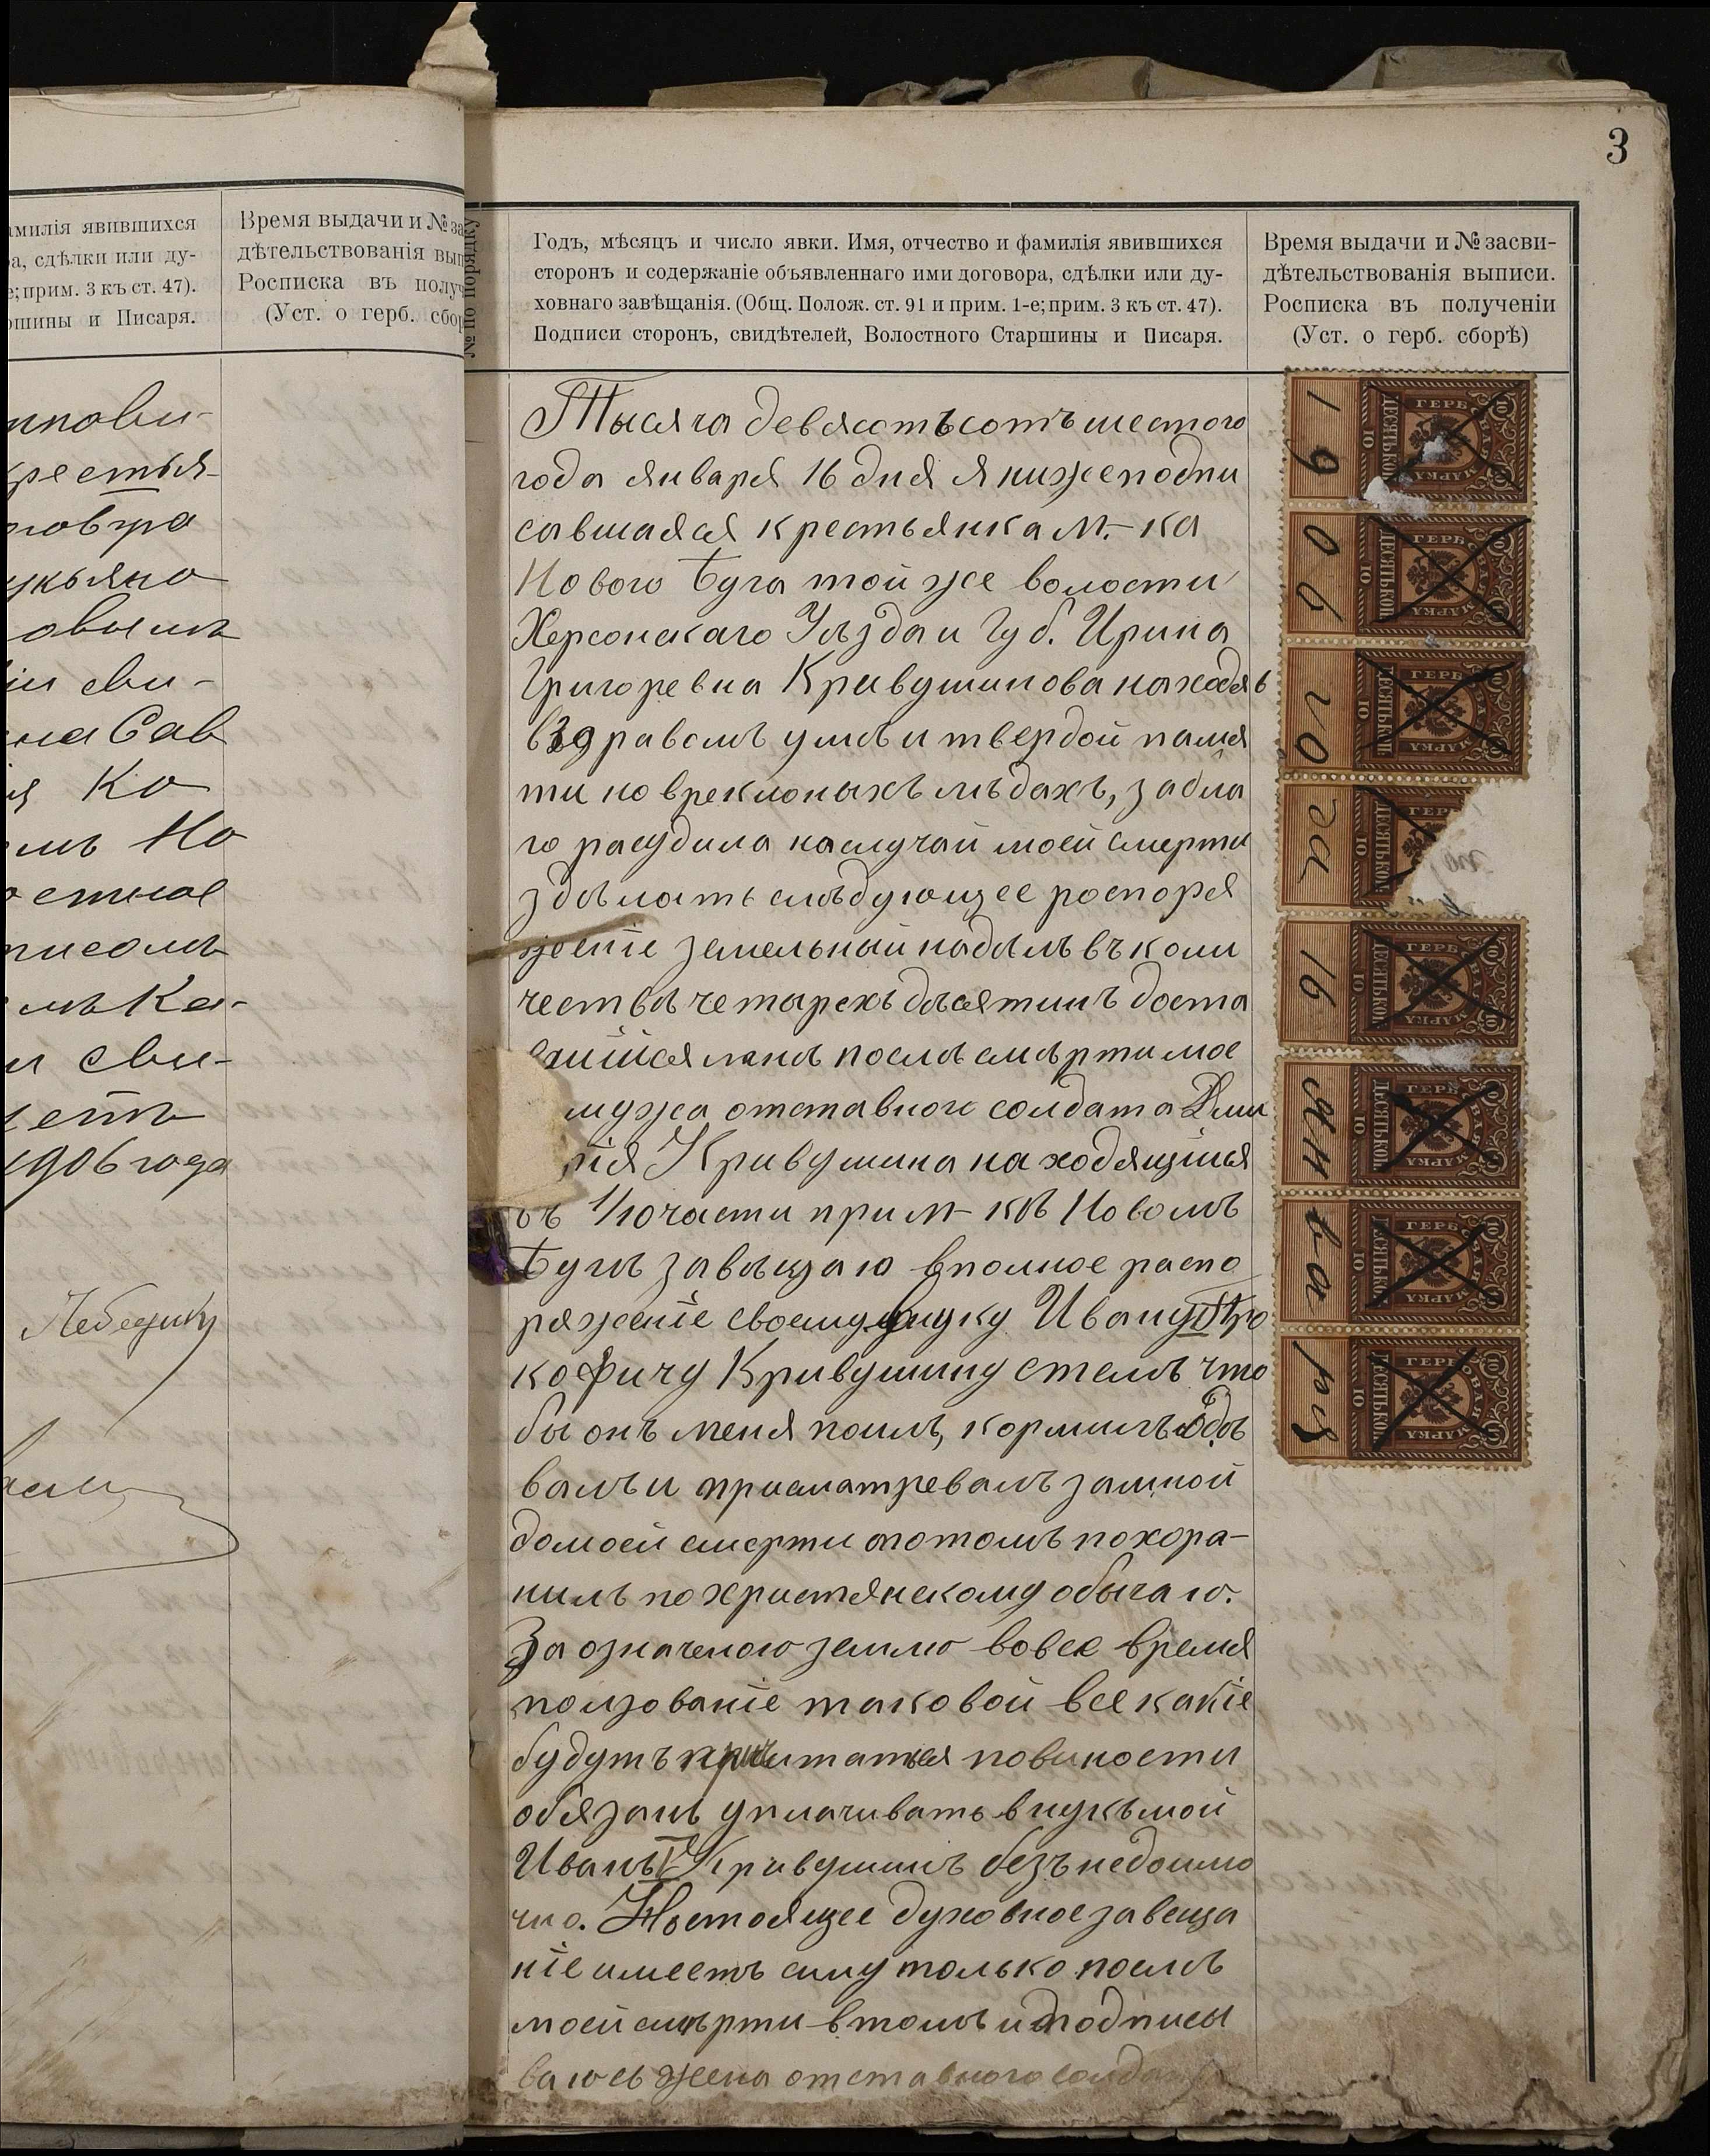 3
амилія явившихся
а, сдѣлки или ду-
е; прим. 3 къ ст. 47).
ршины и Писаря.
Время выдачи и № за
дѣтельствованія вып
Росписка въ получ
(Уст. о герб. сбор
№ по порядку
Годъ, мѣсяцъ и число явки. Имя, отчество и фамилія явившихся
сторонъ и содержаніе объявленнаго ими договора, сдѣлки или ду-
ховнаго завѣщанія. (Общ. Полож. ст. 91 и прим. 1-е; прим. 3 къ ст. 47).
Подписи сторонъ, свидѣтелей, Волостного Старшины и Писаря.
Время выдачи и № засви-
дѣтельствованія выписи.
Росписка въ полученіи
(Уст. о герб. сборѣ)
крестья-
укьяно
овымъ
іи сви-
на Сав
ія Ко
емъ Но
остное
писомъ
мъ Ка-
и сви-
1906 года
Тысяча девясотъсотъ шестого
года января 16 дня я нижеподпи
савшаяся крестьянка м.-ка
Нового Буга той же волости
Херсонскаго Уѣзда и Губ. Ирина
Григоревна Кривушинова находяь
вздравомъ умѣ и твердой памя
ти но
забла
го расудила наслучай моей смерти
здѣлать слѣдующее роспоря
женіе земельный надѣлъ въ коли
чествѣ четырехъ дѣсятинъ доста
вшійся мнѣ послѣ смѣрти мое
мужа отставного солдата Дми
рія Кривушина находящійся
въ 1/10 части при м-кѣ Новомъ
Бугѣ завѣщаю вполное распо
ряженіе своему внуку Ивану Про
кофичу Кривушину стемъ что
бы онъ меня поилъ, кормилъ одѣ
валъ и присматревалъ замной
домоей смерти апотомъ похора-
нилъ по христянскому обычаю.
За означеною землю вовсе время
ползованіе таковой все какіе
будутъ причитаться повиности
обязанъ уплачивать внукъ мой
Иванъ Кривушинъ безъ недоимо
чно. Настоящее духовное завеща
ніе имеетъ силу только послѣ
моей смѣрти втомъ и подписы
ваюсь жена отставного солдата
19
06
го
да
16
ян
ва
ря
ГЕРБ
МАРКА
ДЕСЯТЬ КОП.
10
ГЕРБ
МАРКА
ДЕСЯТЬ КОП.
10
ГЕРБ
МАРКА
ДЕСЯТЬ КОП.
10
ГЕРБ
ДЕСЯТЬ КОП.
10
ГЕРБ
МАРКА
ДЕСЯТЬ КОП.
10
ГЕРБ
МАРКА
ДЕСЯТЬ КОП.
10
ГЕРБ
МАРКА
ДЕСЯТЬ КОП.
10
ГЕРБ
МАРКА
ДЕСЯТЬ КОП.
10